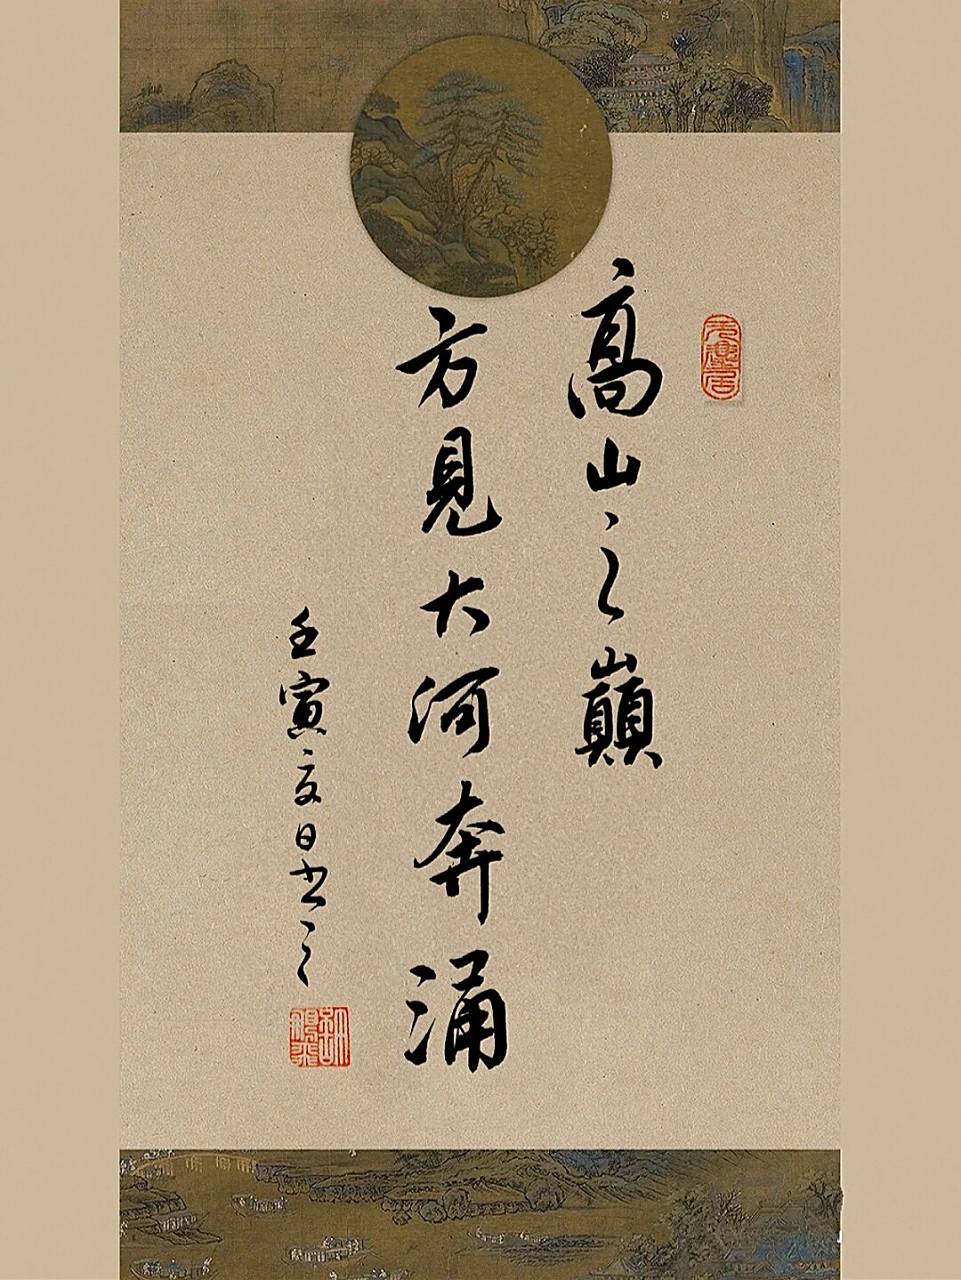 高山之巔
方見大河奔涌
壬寅夏日书之